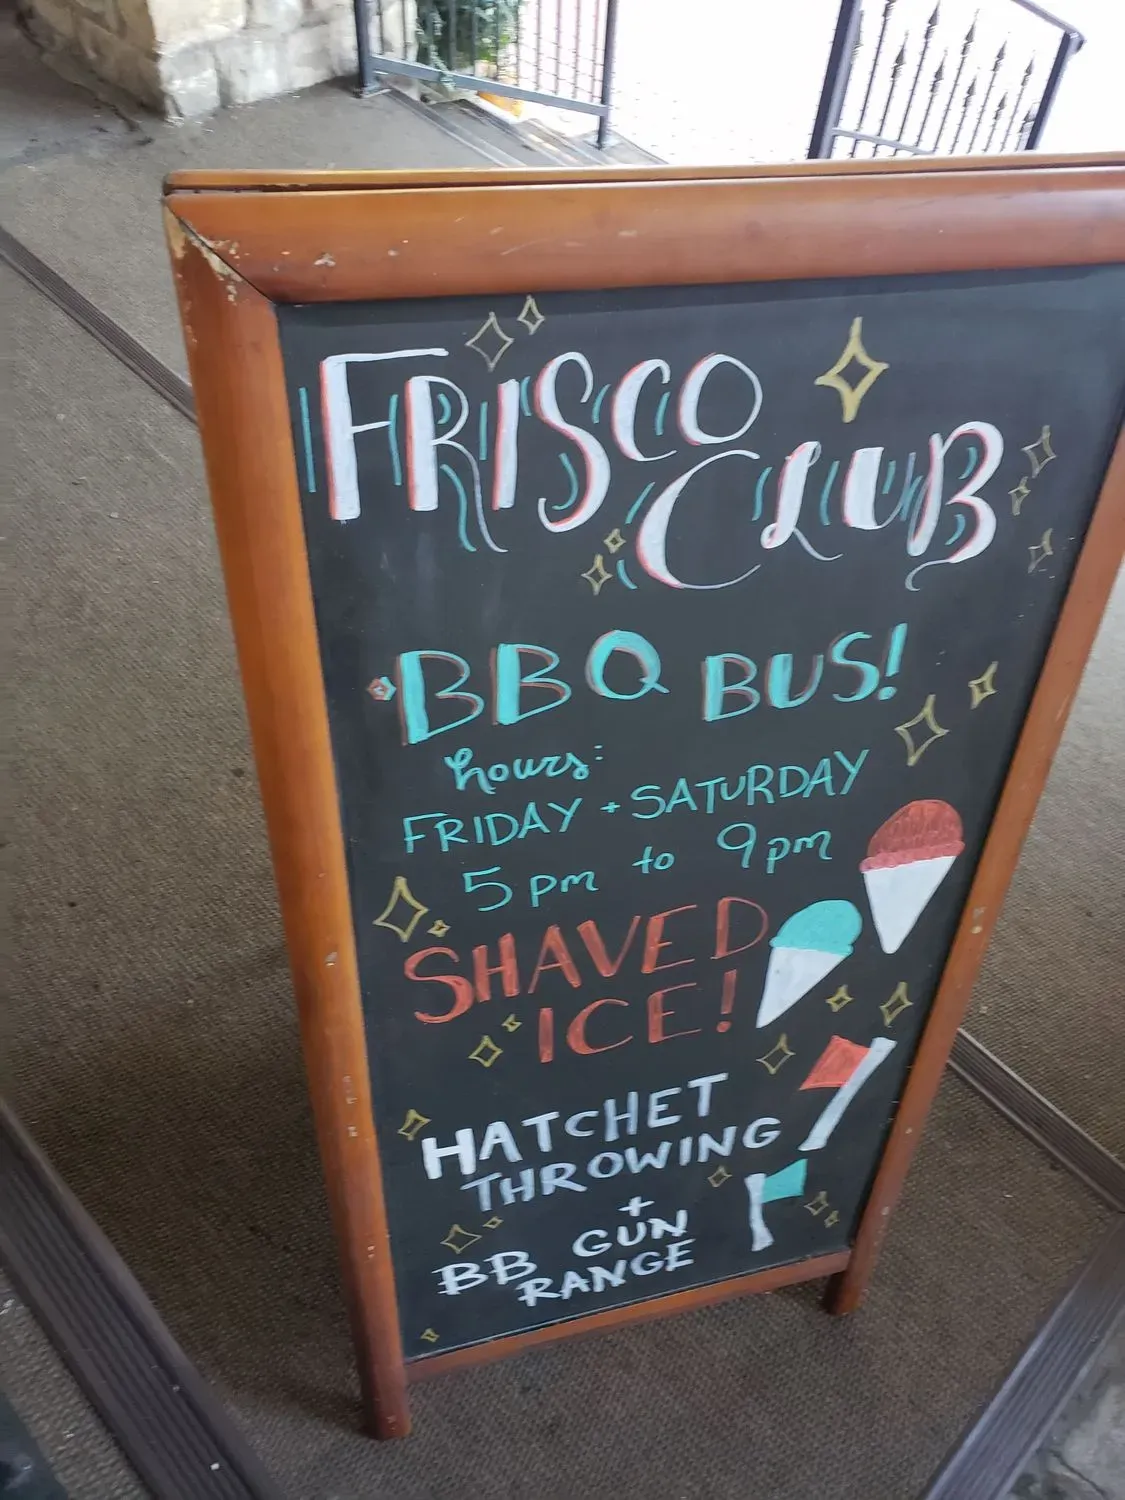 FRISCO
CLUB
BBQ BUS!
hours:
FRIDAY + SATURDAY
5pm to 9pm
SHAVED
ICE!
HATCHET
THROWING
+
BB GUN
RANGE